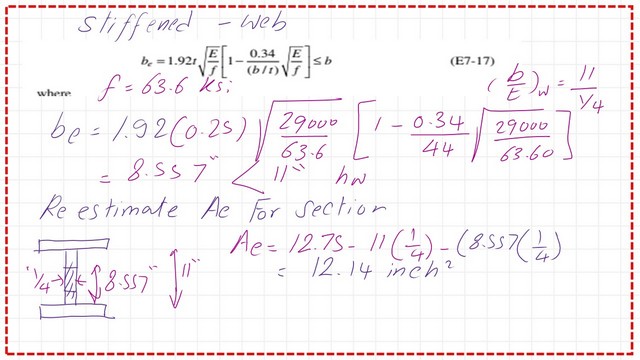 stiffened - web
b_e = 1.92t√(E/f) [1 - 0.34/(b/t) √(E/f)] ≤ b (E7-17)
where f = 63.6 ksi (b/t)_w = 11 / 1/4
be = 1.92 (0.25) √(29000/63.6) [1 - 0.34/44 √(29000/63.60)]
= 8.557" < 11" hw
Re estimate Ae For section
Ae = 12.75 - 11(1/4) - (8.557(1/4)
1/4 8.557" 11" = 12.14 inch²